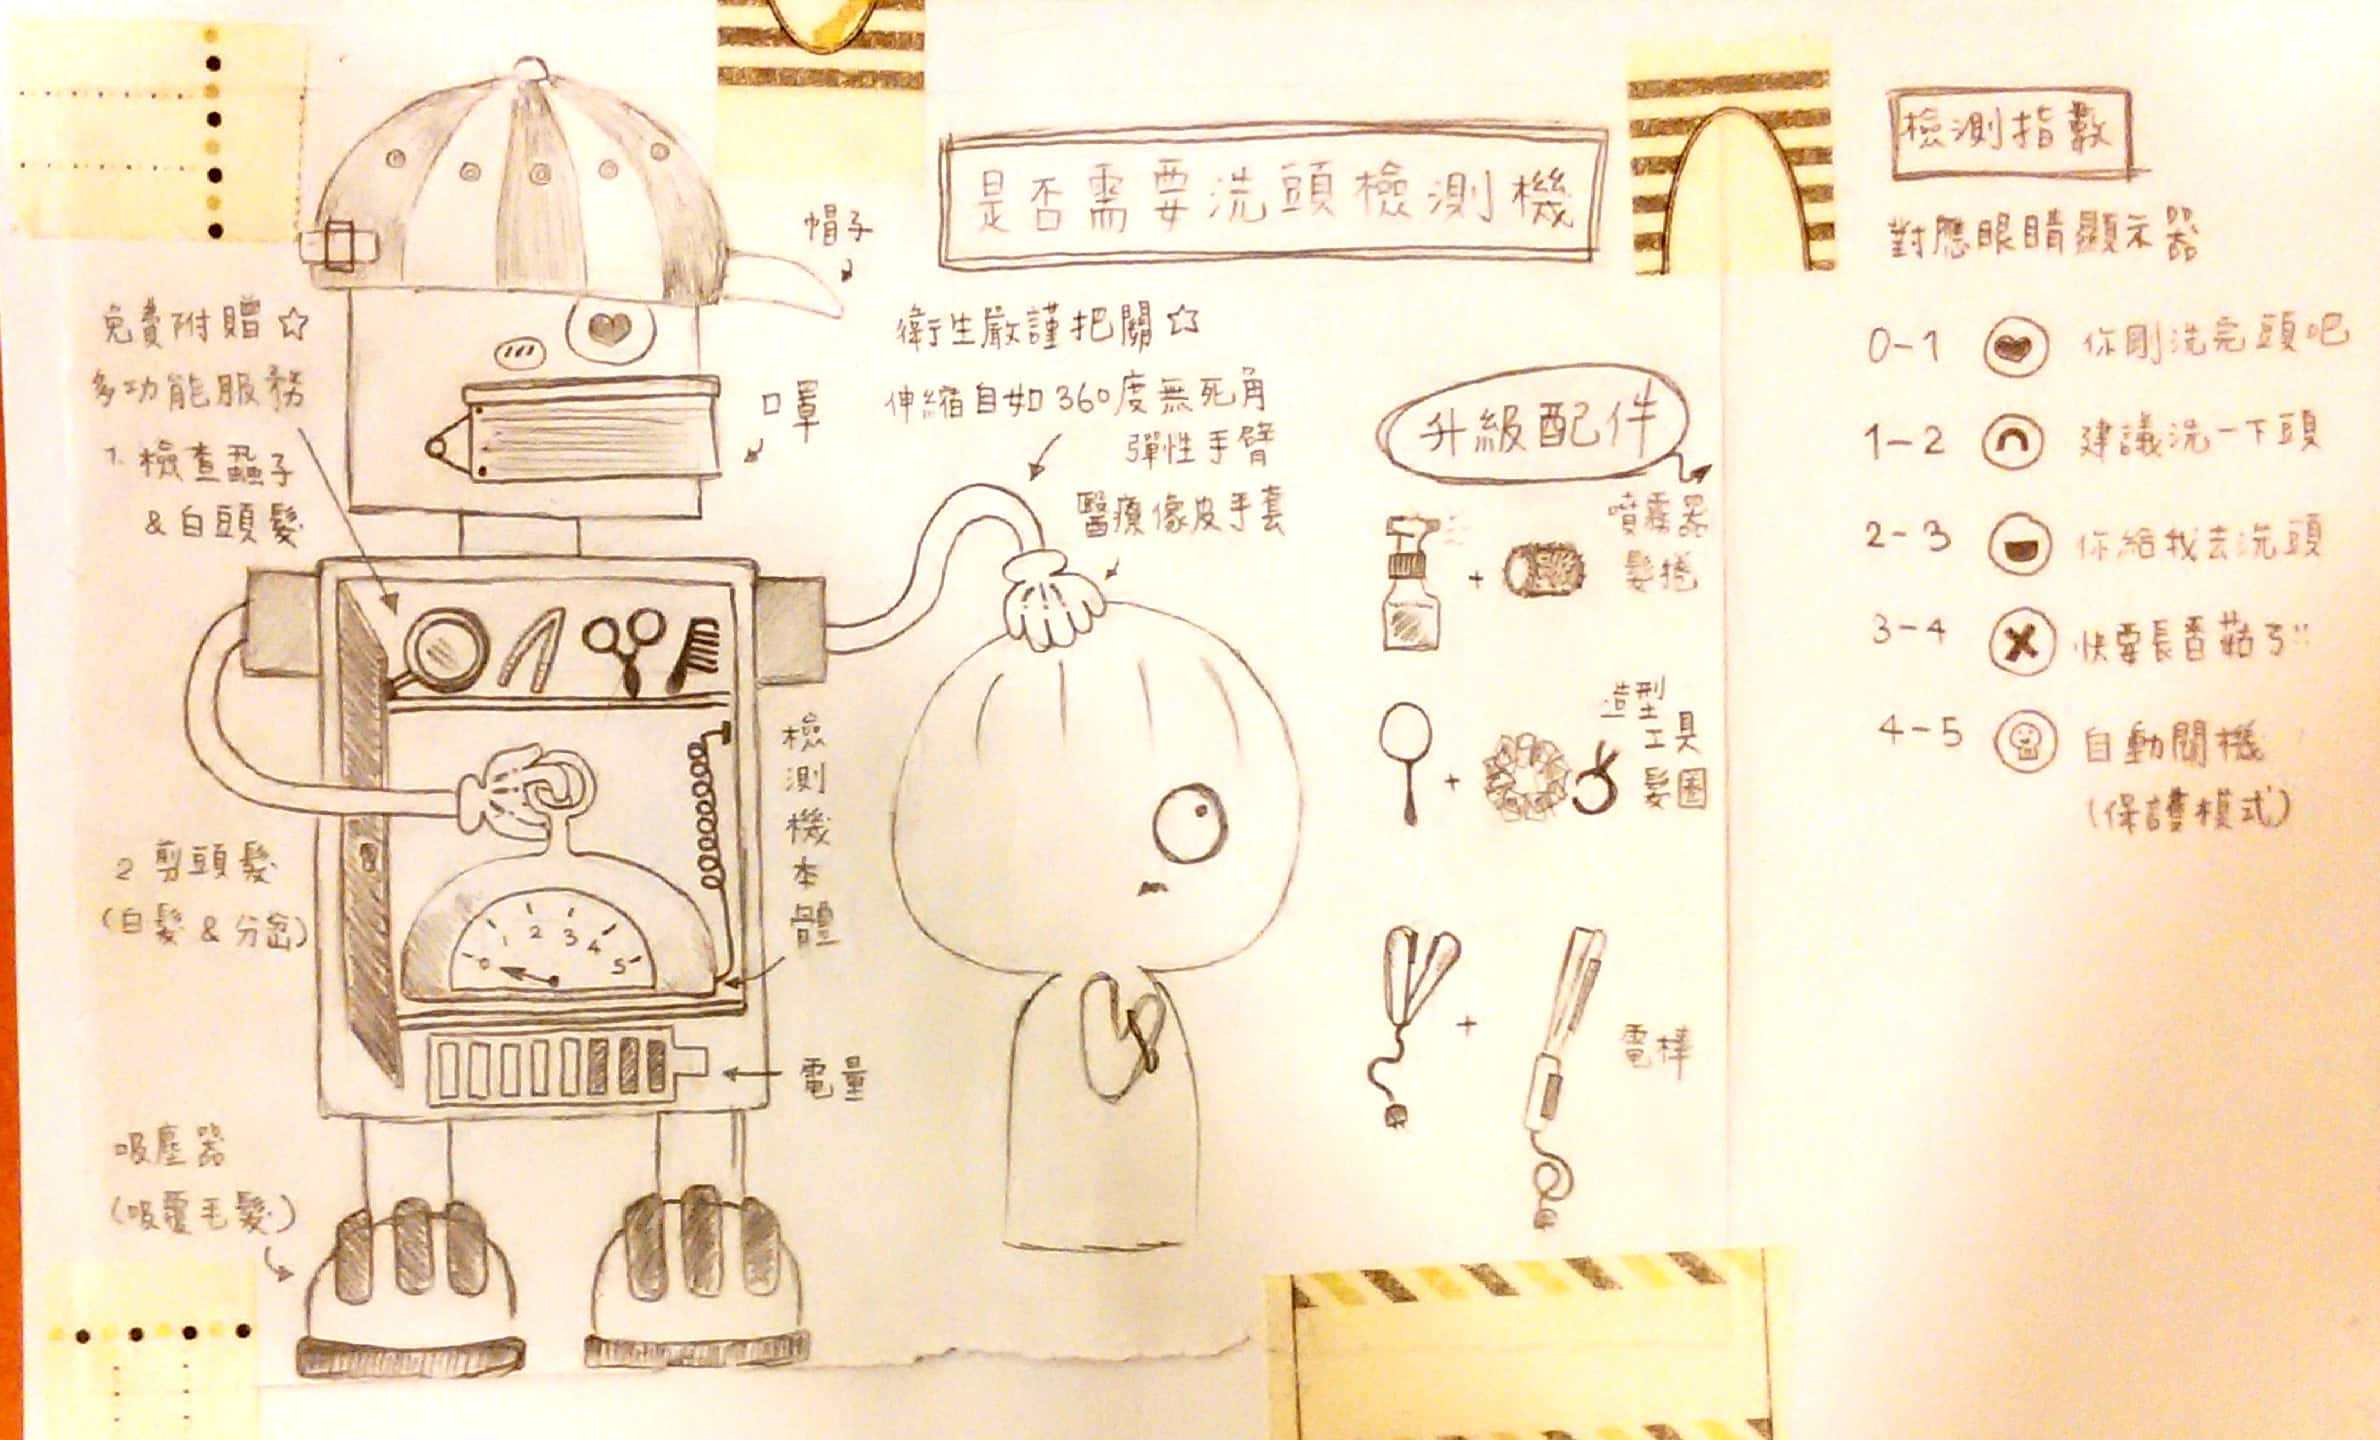 是否需要洗頭檢測機
帽子
口罩
免費附贈☆
多功能服務
1. 檢查蝨子
& 白頭髮
2 剪頭髮
(白髮 & 分岔)
吸塵器
(吸覆毛髮)
衛生嚴謹把關☆
伸縮自如360度無死角
彈性手臂
醫療像皮手套
檢測機本體
0 1 2 3 4 5
電量
升級配件
噴霧器
+
髮捲
造型
工具
+
髮圈
+
電棒
檢測指數
對應眼睛顯示器
0-1 你剛洗完頭吧
1-2 建議洗一下頭
2-3 你給我去洗頭
3-4 快要長香菇ㄎ!!
4-5 自動關機
(保護模式)